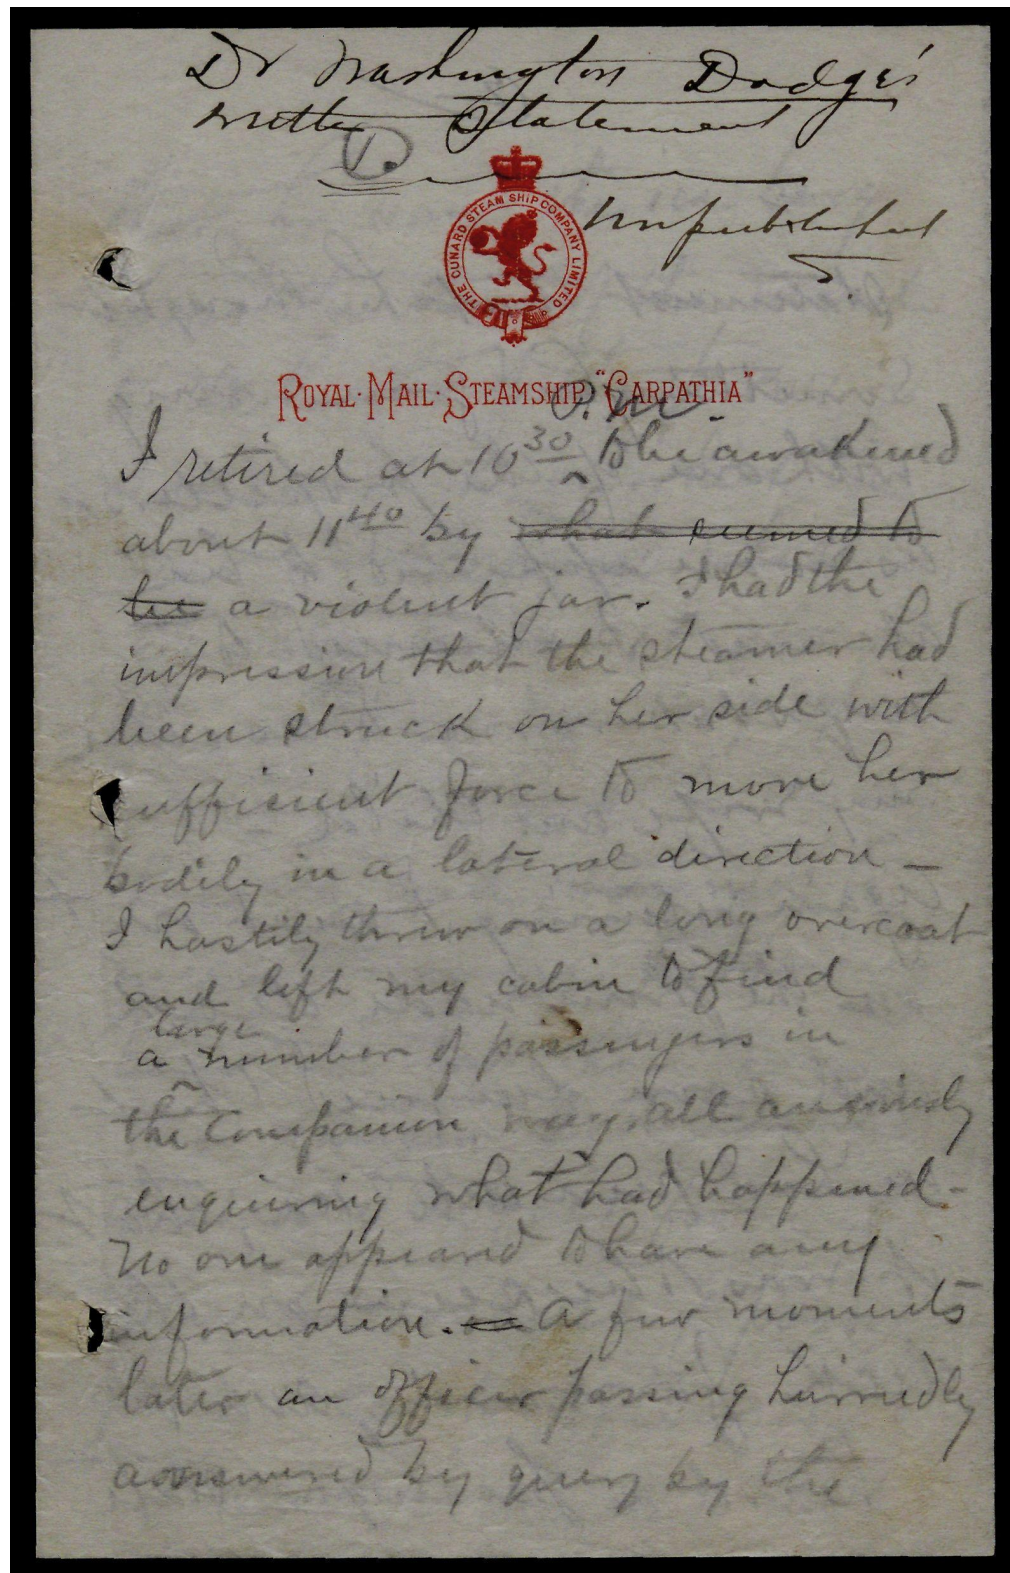 Dr Washington Dodge's
written Statement
1.
Unpublished
THE CUNARD STEAM SHIP COMPANY LIMITED
ROYAL·MAIL·STEAMSHIP "CARPATHIA"
P.M.
I retired at 10 30 to be awakened
about 11 40 by what seemed to
be a violent jar. I had the
impression that the steamer had
been struck on her side with
suffisient force to move her
bodily in a lateral direction –
I hastily threw on a long overcoat
and left my cabin to find
large
a number of passengers in
the Companion way, all anxiously
enquiring what had happened –
No one appeared to have any
information. A few moments
later an officer passing hurriedly
answered by query by the